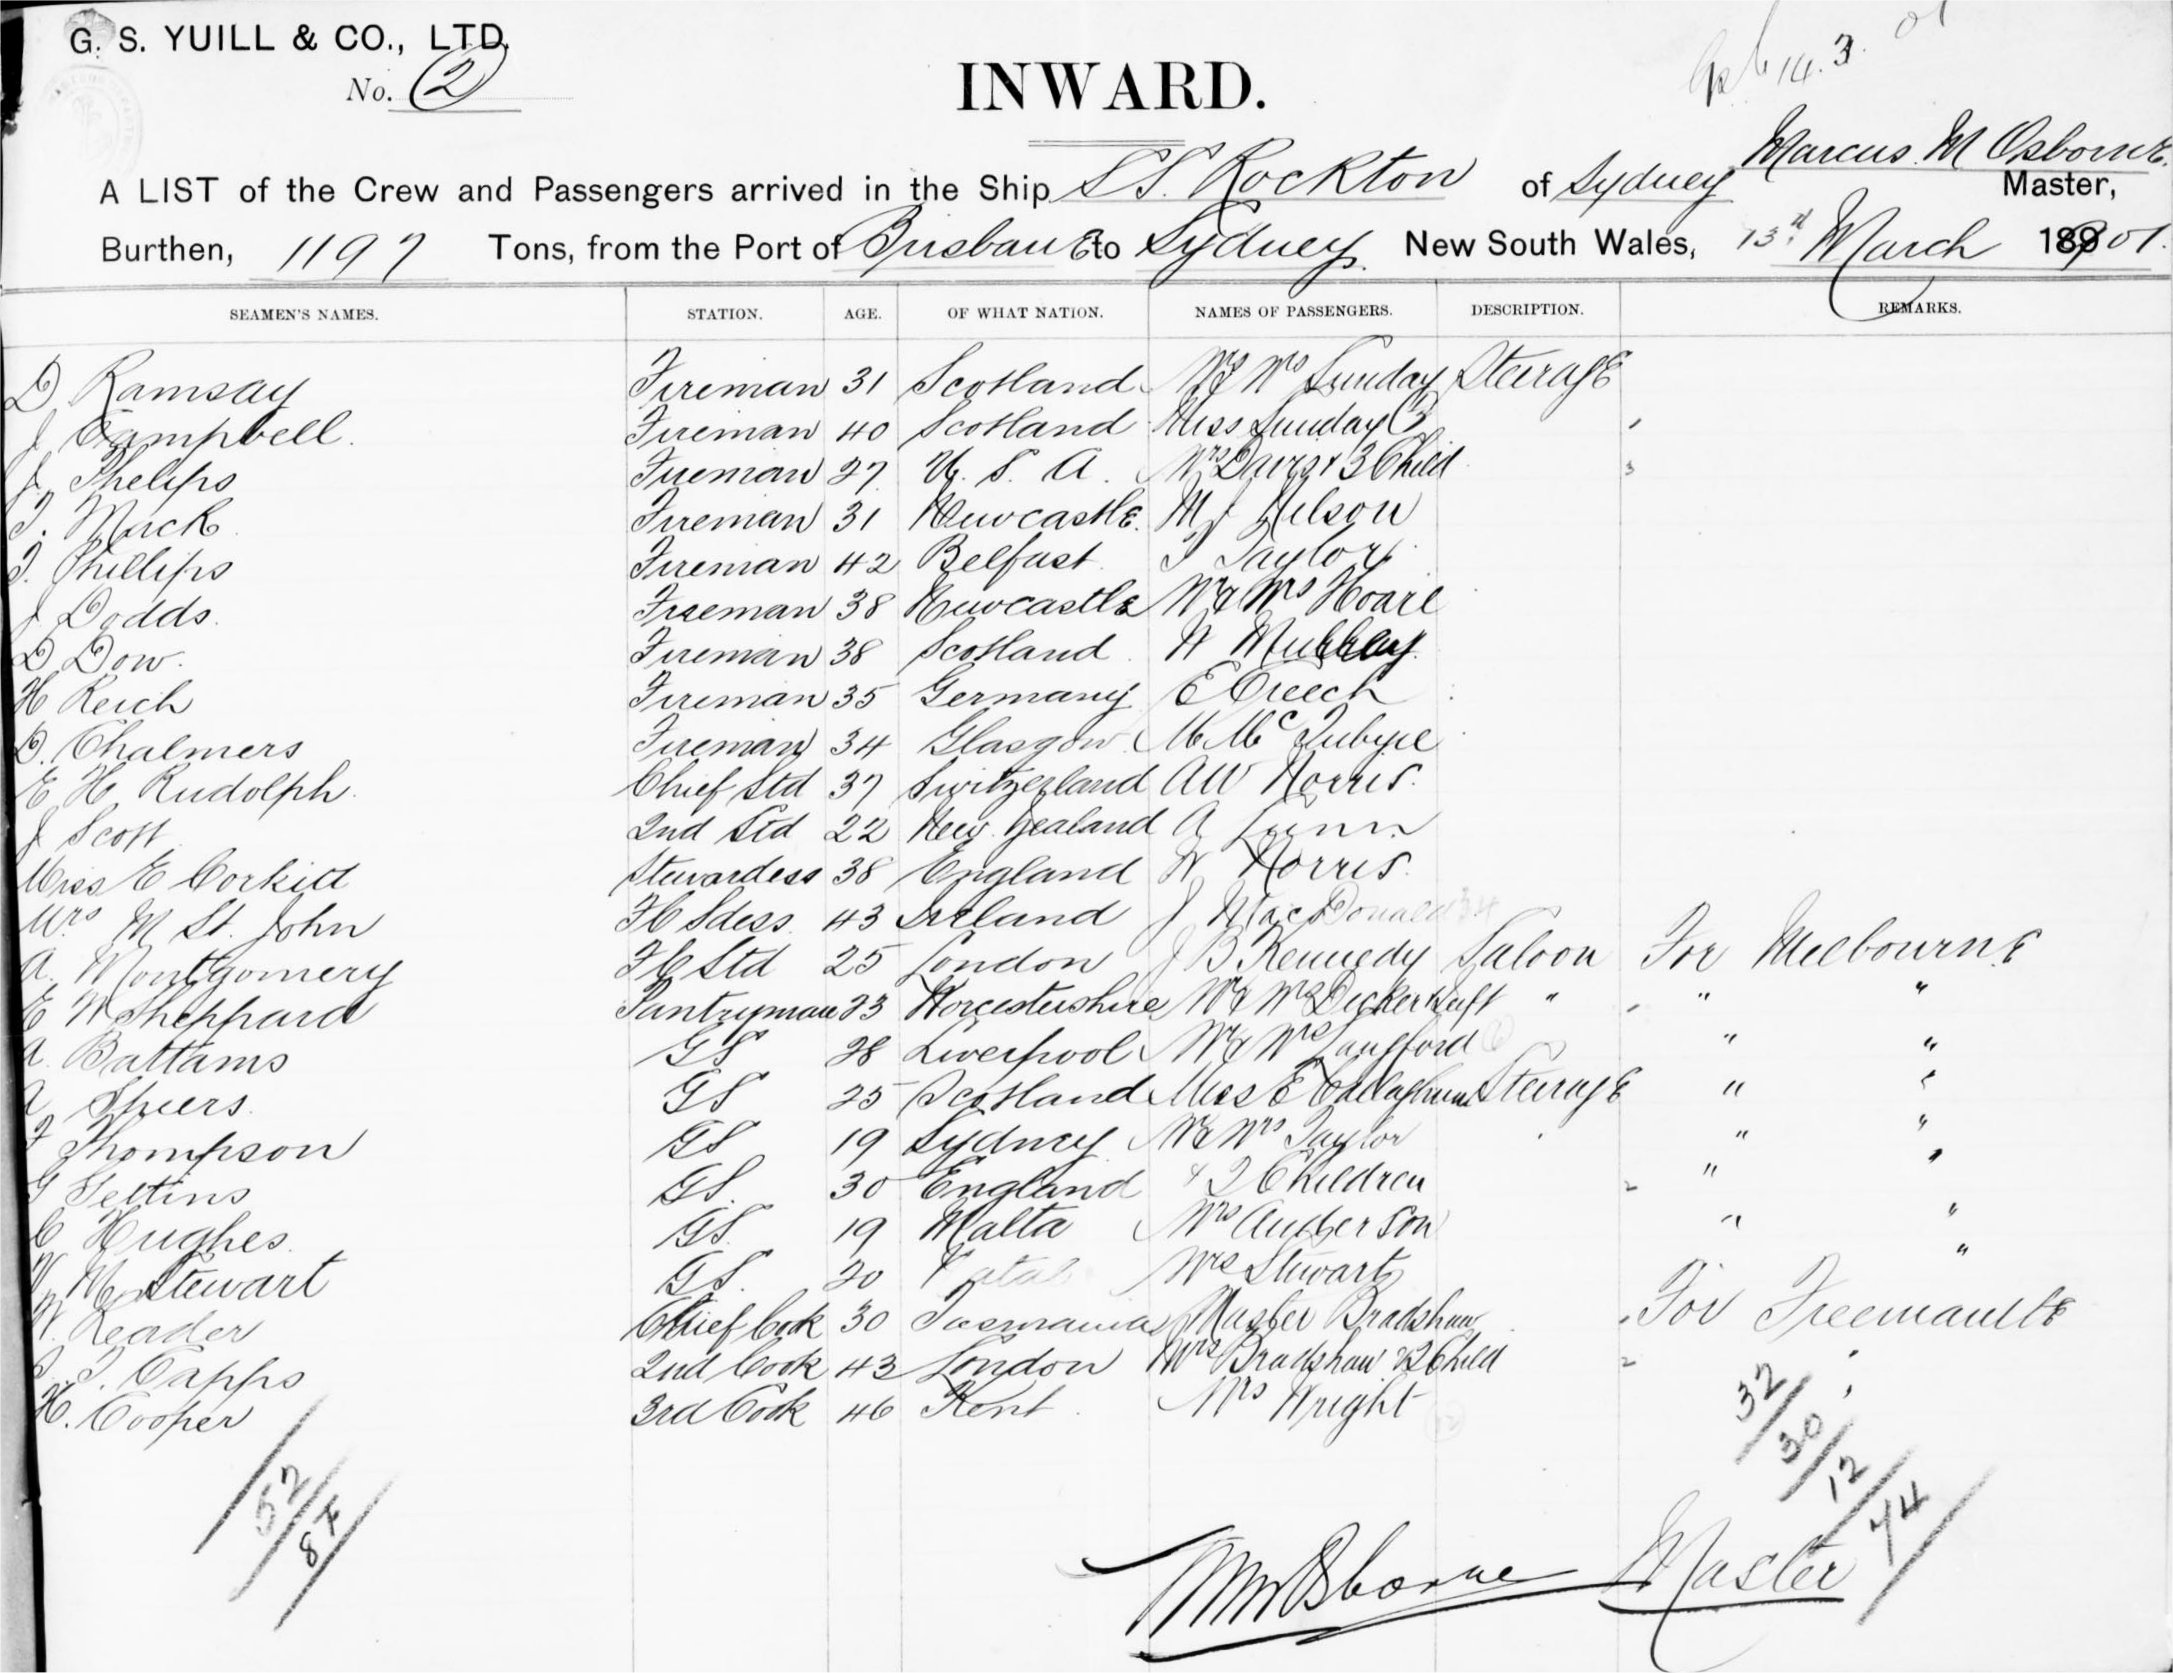 G. S. YUILL & CO., LTD.
No. 2
14.3.01
INWARD.
Marcus M Osborne
A LIST of the Crew and Passengers arrived in the Ship SS. Rockton of Sydney Master,
Burthen, 1197 Tons, from the Port of Brisbane to Sydney New South Wales, 13 March 1901.
SEAMEN'S NAMES. STATION. AGE. OF WHAT NATION. NAMES OF PASSENGERS. DESCRIPTION. REMARKS.
D Ramsay Fireman 31 Scotland Mr & Mrs Sunday Steerage
J Campbell. Fireman 40 Scotland Miss Sunday
J Phelips Fireman 27 U. S. A. Mrs Davis & 3 Child 3
T. Mack Fireman 31 Newcastle. M J Nelson
T. Phillips Fireman 42 Belfast. T Taylor
J Dodds. Fireman 38 Newcastle Mr & Mrs Hoare
D Dow. Fireman 38 Scotland W Murray
H Reich Fireman 35 Germany E Creech
D. Chalmers Fireman 34 Glasgow M Mc
E H Rudolph. Chief Std 37 Switzerland A W Norris.
J Scott 2nd Std 22 New Zealand A Lunn
Miss E Corkill Stewardess 38 England W Norris.
Mrs M St. John FC Sdess. 43 Ireland J MacDonald 34
A. Montgomery FC Std 25 London J B Kennedy Saloon For Melbourne
E W Sheppard Pantryman 23 Worcestershire Mr & Mrs " " "
A. Battams GS 28 Liverpool Mr & Mrs Langford " "
A Shiers. GS 25 Scotland Miss E Callaghan Steerage " "
F Thompson GS 19 Sydney Mr & Mrs Taylor " "
G Seltins GS. 30 England & 2 Children 2 " "
C Hughes. GS. 19 Malta Mrs Anderson " "
W M Stewart GS. 20 Mrs Stewart "
W. Reader Chief Cook 30 Tasmania Master Bradshaw For Freemantle
T. Capps 2nd Cook 43 London Mrs Bradshaw & 2 Child 2
H. Cooper 3rd Cook 46 Kent. Mrs Wright
52/84
32/30/12/74
M M Osborne Master